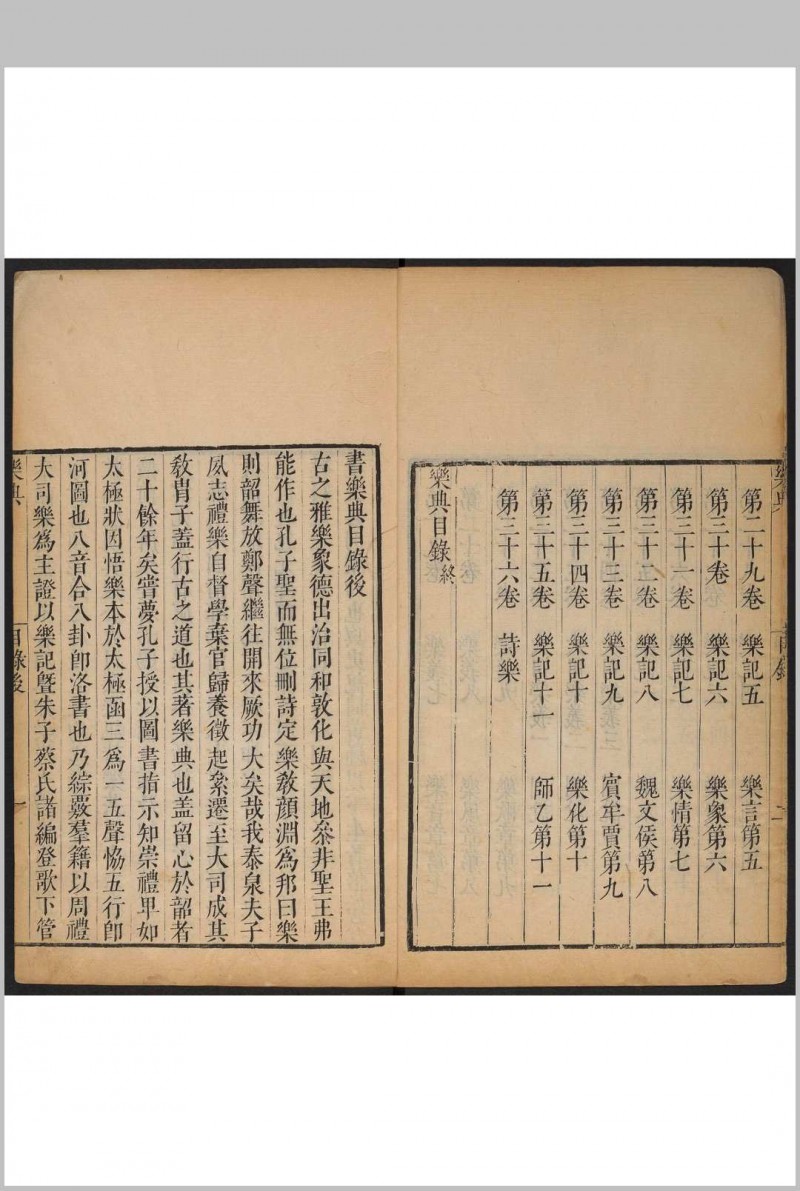 第二十九卷　樂記五　樂言第五
第三十卷　樂記六　樂象第六
第三十一卷　樂記七　樂情第七
第三十二卷　樂記八　魏文侯第八
第三十三卷　樂記九　賓牟賈第九
第三十四卷　樂記十　樂化第十
第三十五卷　樂記十一　師乙第十一
第三十六卷　詩樂
樂典目錄終
書樂典目錄後
古之雅樂象德出治同和敦化與天地叅非聖王弗
能作也孔子聖而無位刪詩定樂敎顏淵爲邦曰樂
則韶舞放鄭聲繼往開來厥功大矣哉我泰泉夫子
夙志禮樂自督學棄官歸養徵起絫遷至大司成其
敎胄子蓋行古之道也其著樂典也蓋留心於韶者
二十餘年矣嘗夢孔子授以圖書指示知崇禮卑如
太極狀因悟樂本於太極函三爲一五聲恊五行卽
河圖也八音合八卦卽洛書也乃綜覈羣籍以周禮
大司樂爲主證以樂記曁朱子蔡氏諸編登歌下管
樂典
目錄後
一